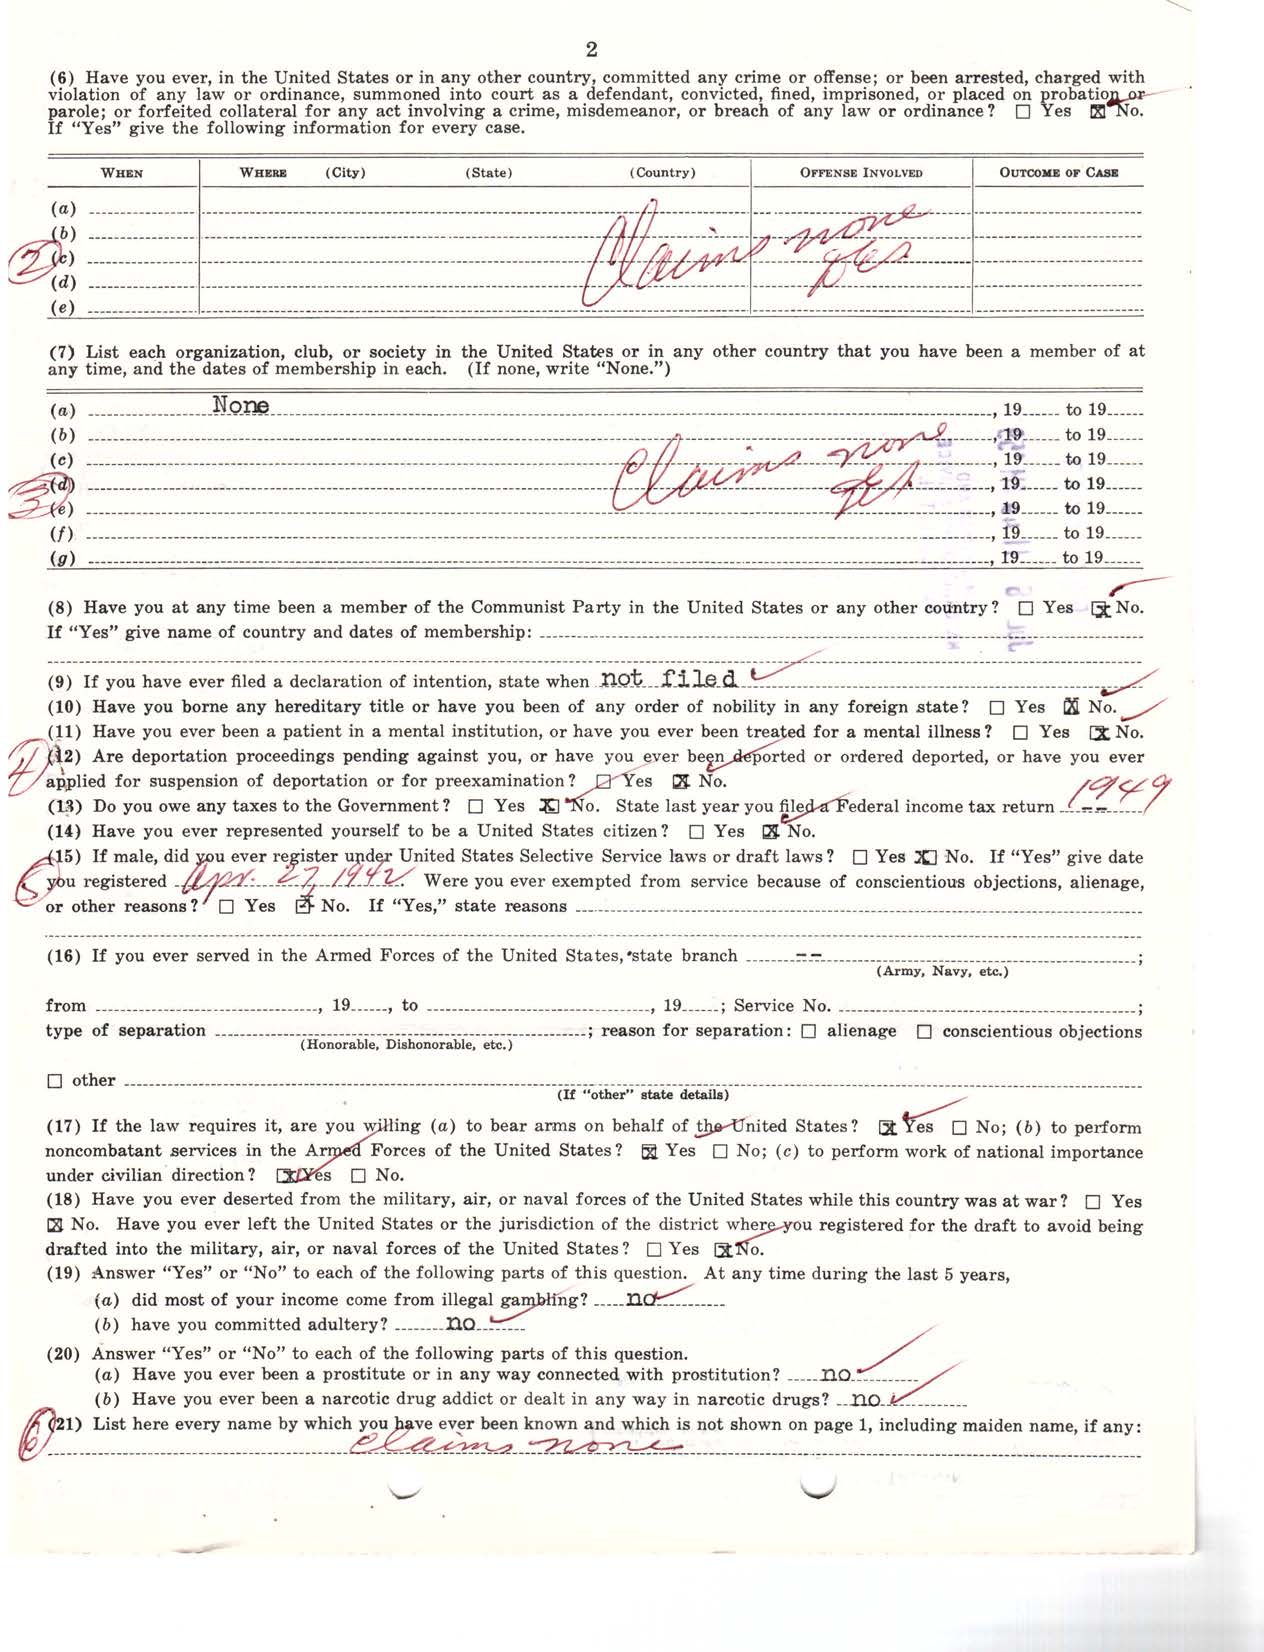 2
(6) Have you ever, in the United States or in any other country, committed any crime or offense; or been arrested, charged with
violation of any law or ordinance, summoned into court as a defendant, convicted, fined, imprisoned, or placed on probation or
parole; or forfeited collateral for any act involving a crime, misdemeanor, or breach of any law or ordinance? ☐ Yes ☒ No.
If “Yes” give the following information for every case.
WHEN WHERE (City) (State) (Country) OFFENSE INVOLVED OUTCOME OF CASE
(a)
(b) Claims none
2 (c)
(d)
(e)
(7) List each organization, club, or society in the United States or in any other country that you have been a member of at
any time, and the dates of membership in each. (If none, write “None.”)
(a) None , 19 to 19
(b) , 19 to 19
(c) Claims none , 19 to 19
3 (d) , 19 to 19
(e) , 19 to 19
(f) , 19 to 19
(g) , 19 to 19
(8) Have you at any time been a member of the Communist Party in the United States or any other country? ☐ Yes ☒ No.
If “Yes” give name of country and dates of membership:
(9) If you have ever filed a declaration of intention, state when not filed
(10) Have you borne any hereditary title or have you been of any order of nobility in any foreign state? ☐ Yes ☒ No.
(11) Have you ever been a patient in a mental institution, or have you ever been treated for a mental illness? ☐ Yes ☒ No.
4 (12) Are deportation proceedings pending against you, or have you ever been deported or ordered deported, or have you ever
applied for suspension of deportation or for preexamination? ☐ Yes ☒ No.
(13) Do you owe any taxes to the Government? ☐ Yes ☒ No. State last year you filed a Federal income tax return -- 1949
(14) Have you ever represented yourself to be a United States citizen? ☐ Yes ☒ No.
(15) If male, did you ever register under United States Selective Service laws or draft laws? ☐ Yes ☒ No. If “Yes” give date
5 you registered Apr. 27, 1942. Were you ever exempted from service because of conscientious objections, alienage,
or other reasons? ☐ Yes ☒ No. If “Yes,” state reasons
(16) If you ever served in the Armed Forces of the United States, state branch -- ;
(Army, Navy, etc.)
from , 19 , to , 19 ; Service No. ;
type of separation ; reason for separation: ☐ alienage ☐ conscientious objections
(Honorable, Dishonorable, etc.)
☐ other
(If “other” state details)
(17) If the law requires it, are you willing (a) to bear arms on behalf of the United States? ☒ Yes ☐ No; (b) to perform
noncombatant services in the Armed Forces of the United States? ☒ Yes ☐ No; (c) to perform work of national importance
under civilian direction? ☒ Yes ☐ No.
(18) Have you ever deserted from the military, air, or naval forces of the United States while this country was at war? ☐ Yes
☒ No. Have you ever left the United States or the jurisdiction of the district where you registered for the draft to avoid being
drafted into the military, air, or naval forces of the United States? ☐ Yes ☒ No.
(19) Answer “Yes” or “No” to each of the following parts of this question. At any time during the last 5 years,
(a) did most of your income come from illegal gambling? no
(b) have you committed adultery? no
(20) Answer “Yes” or “No” to each of the following parts of this question.
(a) Have you ever been a prostitute or in any way connected with prostitution? no
(b) Have you ever been a narcotic drug addict or dealt in any way in narcotic drugs? no
6 (21) List here every name by which you have ever been known and which is not shown on page 1, including maiden name, if any:
claims none